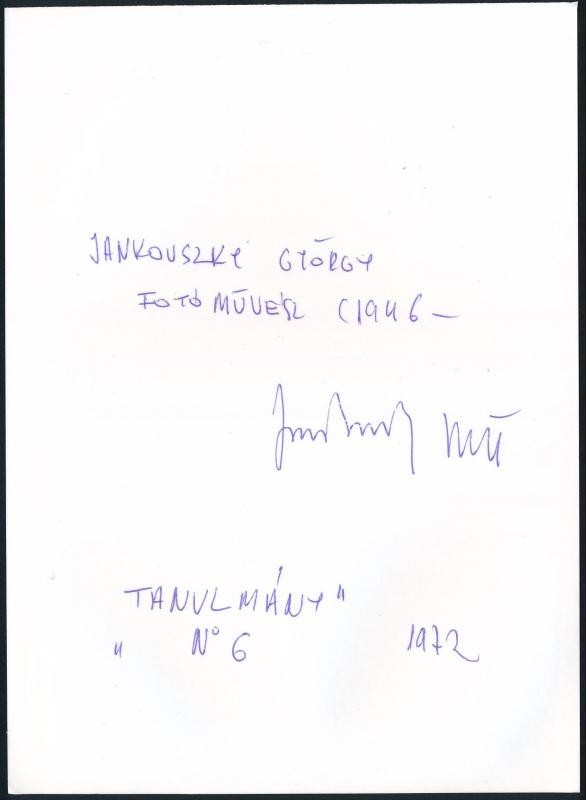 JANKOVSZKY GYÖRGY
FOTÓMŰVÉSZ (1946 –
TANULMÁNY"
" Nº 6 1972